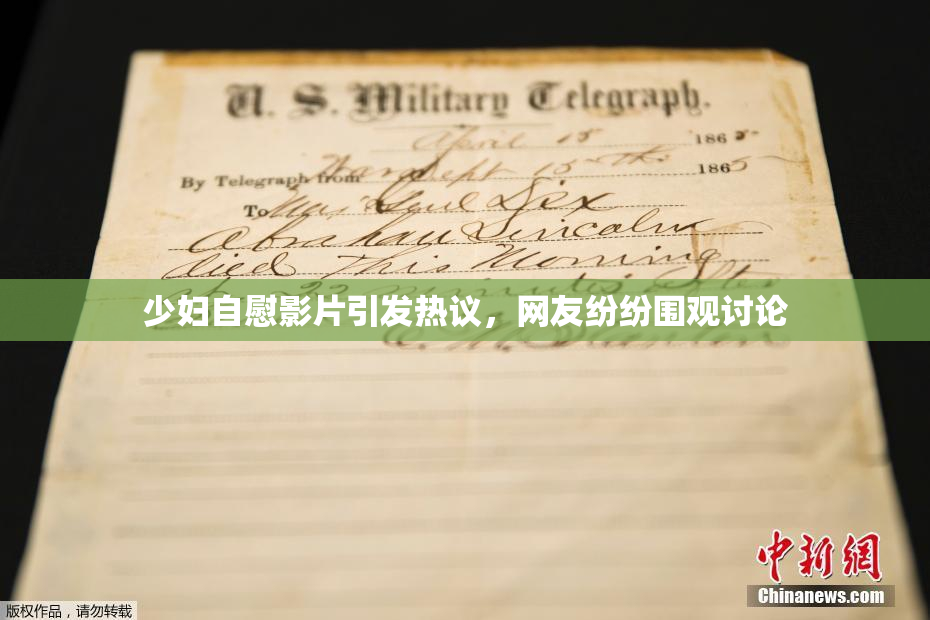 U. S. Military Telegraph.
April 15 1865
By Telegraph from War Dept 15th 1865
To Maj Genl Dix
Abraham Lincoln
died This Morning
22 minutes after
少妇自慰影片引发热议，网友纷纷围观讨论
E. M. Stanton
中新网
Chinanews.com
版权作品，请勿转载